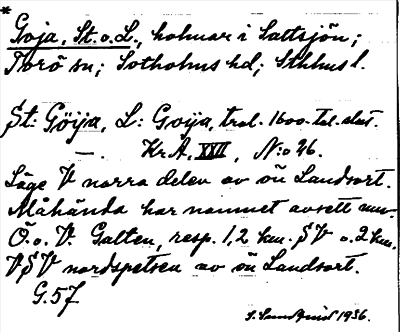 *
Goja, St. o. L., holmar i Saltsjön;
Torö sn; Sotholms hd; Sthlms l.
St: Göija, L: Goija, trol. 1600-tal. slut.
—. Kr A, XXII, N:o 26.
Läge V norra delen av ön Landsort.
Måhända har namnet avsett
Ö. o. V. Galten, resp. 1,2 km. SV o. 2 km.
VSV nordspetsen av ön Landsort.
G. 57
1936.